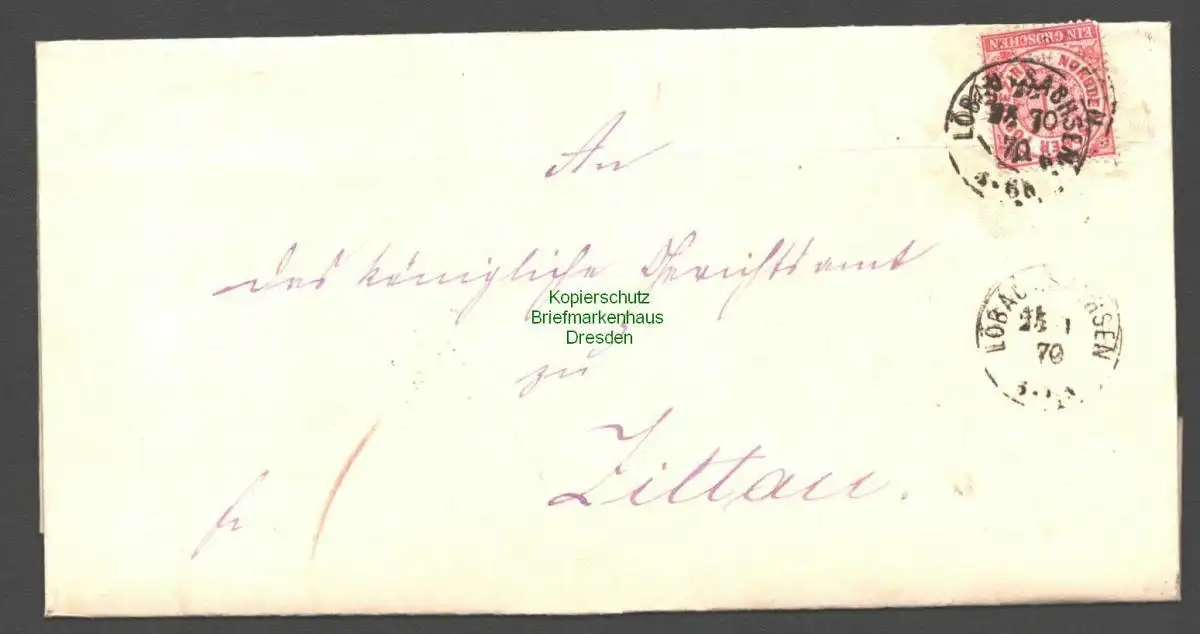 EIN GROSCHEN
NORDDEUTSCHER
LÖBAU SACHSEN
70
An
das Königliche Gerichtsamt
Kopierschutz
Briefmarkenhaus
Dresden
LÖBAU SACHSEN
25 1
70
zu
Zittau.
fr